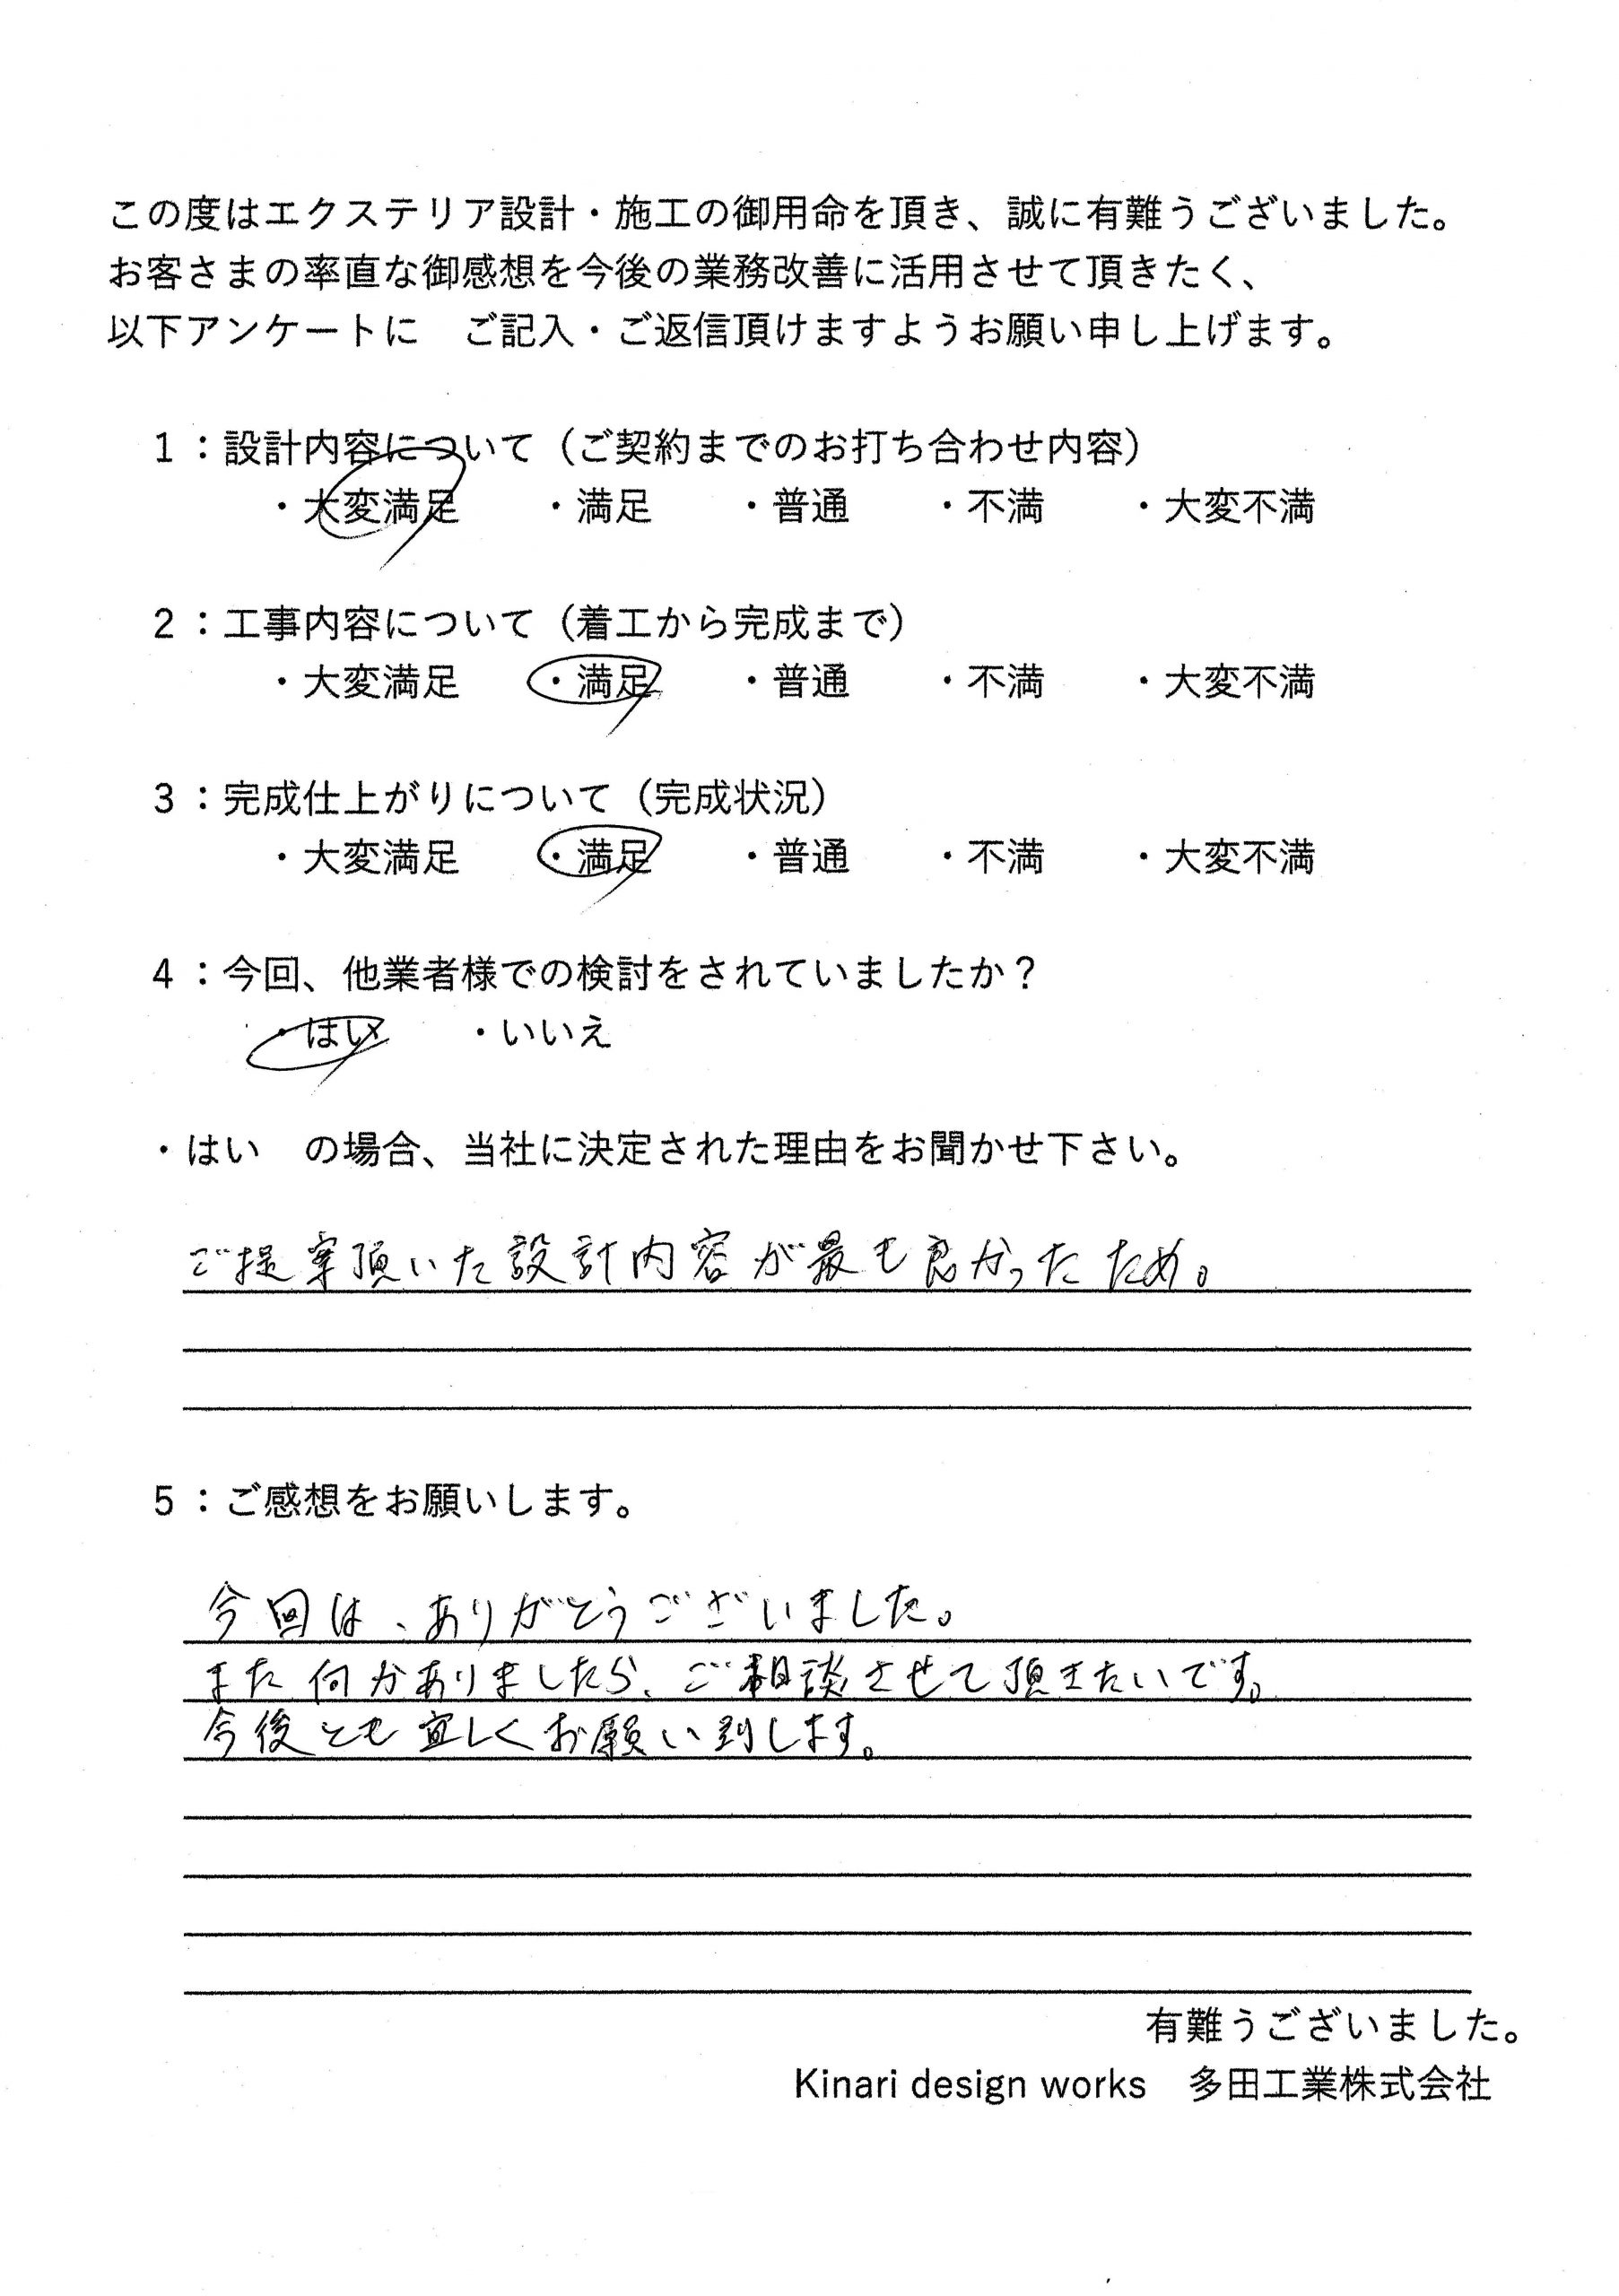 この度はエクステリア設計・施工の御用命を頂き、誠に有難うございました。
お客さまの率直な御感想を今後の業務改善に活用させて頂きたく、
以下アンケートに　ご記入・ご返信頂けますようお願い申し上げます。
1：設計内容について（ご契約までのお打ち合わせ内容）
・大変満足　・満足　・普通　・不満　・大変不満
2：工事内容について（着工から完成まで）
・大変満足　・満足　・普通　・不満　・大変不満
3：完成仕上がりについて（完成状況）
・大変満足　・満足　・普通　・不満　・大変不満
4：今回、他業者様での検討をされていましたか？
・はい　・いいえ
・はい　の場合、当社に決定された理由をお聞かせ下さい。
ご提案頂いた設計内容が最も良かったため。
5：ご感想をお願いします。
今回は、ありがとうございました。
また何かありましたら、ご相談させて頂きたいです。
今後とも宜しくお願い致します。
有難うございました。
Kinari design works　多田工業株式会社